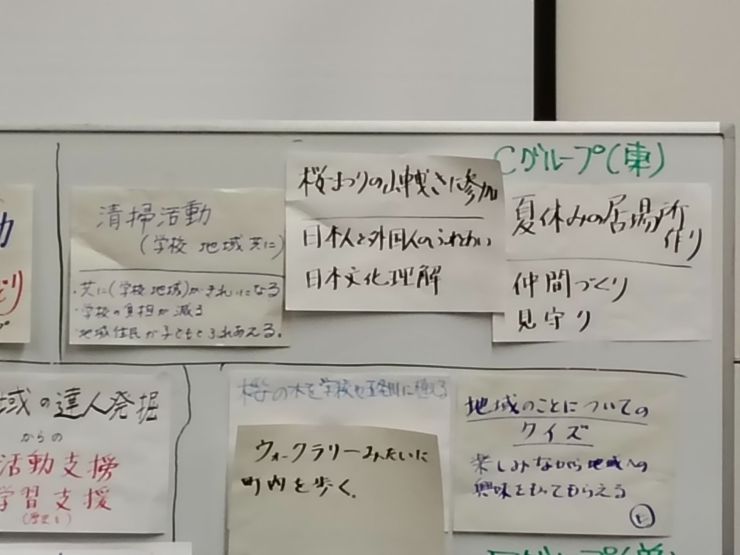 Cグループ(東)
清掃活動
(学校 地域 共に)
・共に(学校 地域)がきれいになる
・学校の負担が減る
・地域住民が子どもとふれあえる。
桜まつりの山曳きに参加
日本人と外国人のふれあい
日本文化理解
夏休みの居場所
作り
仲間づくり
見守り
域の達人発掘
からの
活動支援
学習支援
桜の木を学校や
ウォークラリーみたいに
町内を歩く。
地域のことについての
クイズ
楽しみながら地域への
興味をもってもらえる